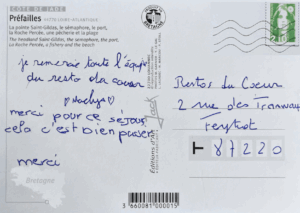 CÔTE DE JADE
Préfailles
La pointe Saint-Gildas, le sémaphore, le port,
La Roche Percée, une pêcherie et la plage
The headland Saint-Gildas, the semaphore, the port,
La Roche Percée, a fishery and the beach
je remercie toute l'équipe
du resto du coeur
merci pour ce séjour
cela c'est bien passer
merci
Restos du Coeur
2 rue des Tramways
Feytiat
87220
Bretagne
3 660081 000015